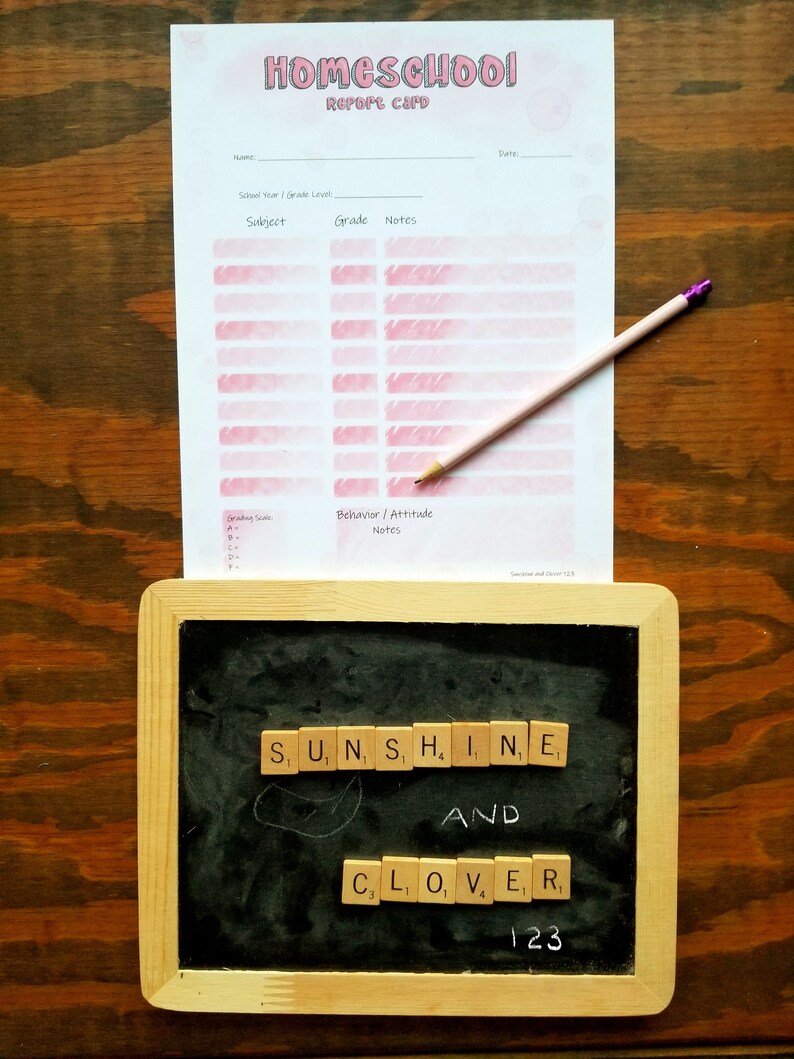 Homeschool
Report Card
Name: Date:
School Year / Grade Level:
Subject Grade Notes
Grading Scale:
A =
B =
C =
D =
F =
Behavior / Attitude
Notes
Sunshine and Clover 123
S1 U1 N1 S1 H4 I1 N1 E1
AND
C3 L1 O1 V4 E1 R1
123